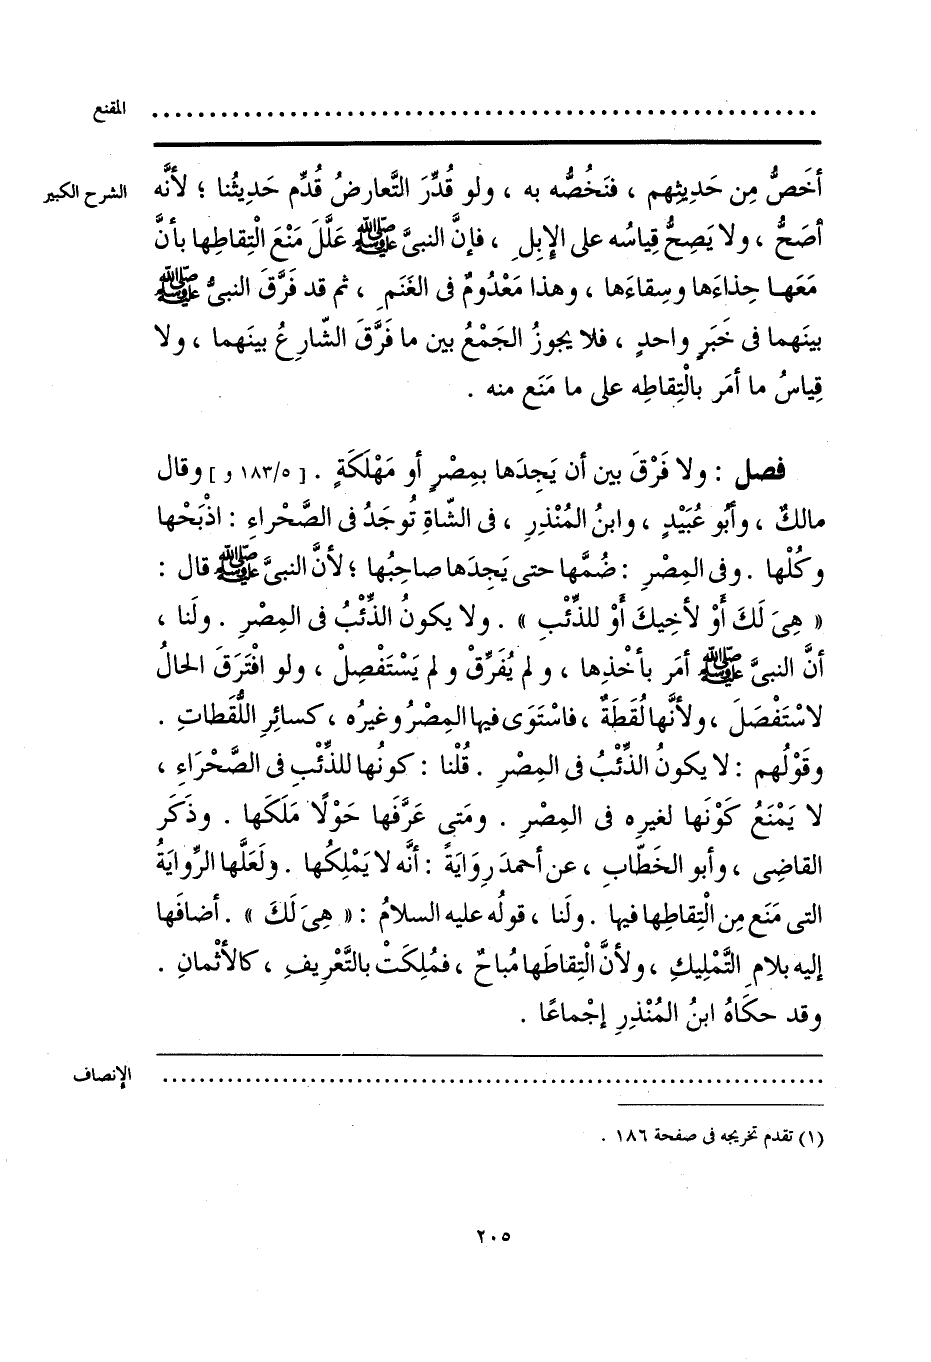 المقنع ................................................................
الشرح الكبير
أخَصُّ مِن حَدِيثِهم ، فنَخُصُّه به ، ولو قُدِّرَ التَّعارضُ قُدِّم حَدِيثُنا ؛ لأنَّه
أصَحُّ ، ولا يَصِحُّ قِياسُه على الإِبِلِ ، فإنَّ النبىَّ ﷺ عَلَّلَ مَنْعَ الْتِقاطِها بأنَّ
مَعَهـا حِذاءَها وسِقاءَها ، وهذا مَعْدُومٌ فى الغَنَمِ ، ثم قد فَرَّقَ النبىُّ ﷺ
بينَهما فى خَبَرٍ واحدٍ ، فلا يجوزُ الجَمْعُ بين ما فَرَّقَ الشّارِعُ بينَهما ، ولا
قِياسُ ما أمَر بالْتِقاطِه على ما مَنَع منه .
فصل : ولا فَرْقَ بين أن يَجِدَها بمِصْرٍ أو مَهْلَكَةٍ . [ ١٨٣/٥ و ] وقال
مالكٌ ، وأبُو عُبَيْدٍ ، وابنُ المُنْذِرِ ، فى الشّاةِ تُوجَدُ فى الصَّحْراءِ : اذْبَحْها
وكُلْها . وفى المِصْرِ : ضُمَّها حتى يَجِدَها صاحِبُها ؛ لأنَّ النبىَّ ﷺ قال :
« هِىَ لَكَ أَوْ لأخِيكَ أَوْ للذِّئْبِ » . ولا يكونُ الذِّئْبُ فى المِصْرِ . ولَنا ،
أنَّ النبىَّ ﷺ أمَر بأخْذِها ، ولم يُفَرِّقْ ولم يَسْتَفْصِلْ ، ولو افْتَرَقَ الحالُ
لاسْتَفْصَلَ ، ولأنَّها لُقَطَةٌ ، فاسْتَوَى فيها المِصْرُ وغيرُه ، كسائِرِ اللُّقَطاتِ .
وقَوْلُهم : لا يكونُ الذِّئْبُ فى المِصْرِ . قُلْنا : كونُها للذِّئْبِ فى الصَّحْراءِ ،
لا يَمْنَعُ كَوْنَها لغيرِه فى المِصْرِ . ومَتى عَرَّفَها حَوْلًا مَلَكَها . وذَكَر
القاضِى ، وأبو الخَطّابِ ، عن أحمدَ رِوَايَةً : أنَّه لا يَمْلِكُها . ولَعَلَّها الرِّوايَةُ
التى مَنَع مِن الْتِقاطِها فيها . ولَنا ، قولُه عليه السلامُ : « هِىَ لَكَ » . أضافَها
إليه بلامِ التَّمْلِيكِ ، ولأنَّ الْتِقاطَها مُباحٌ ، فمُلِكَتْ بالتَّعْرِيفِ ، كالأثْمانِ .
وقد حكَاهُ ابنُ المُنْذِرِ إجْماعًا .
الإنصاف ................................................................
(١) تقدم تخريجه فى صفحة ١٨٦ .
٢٠٥